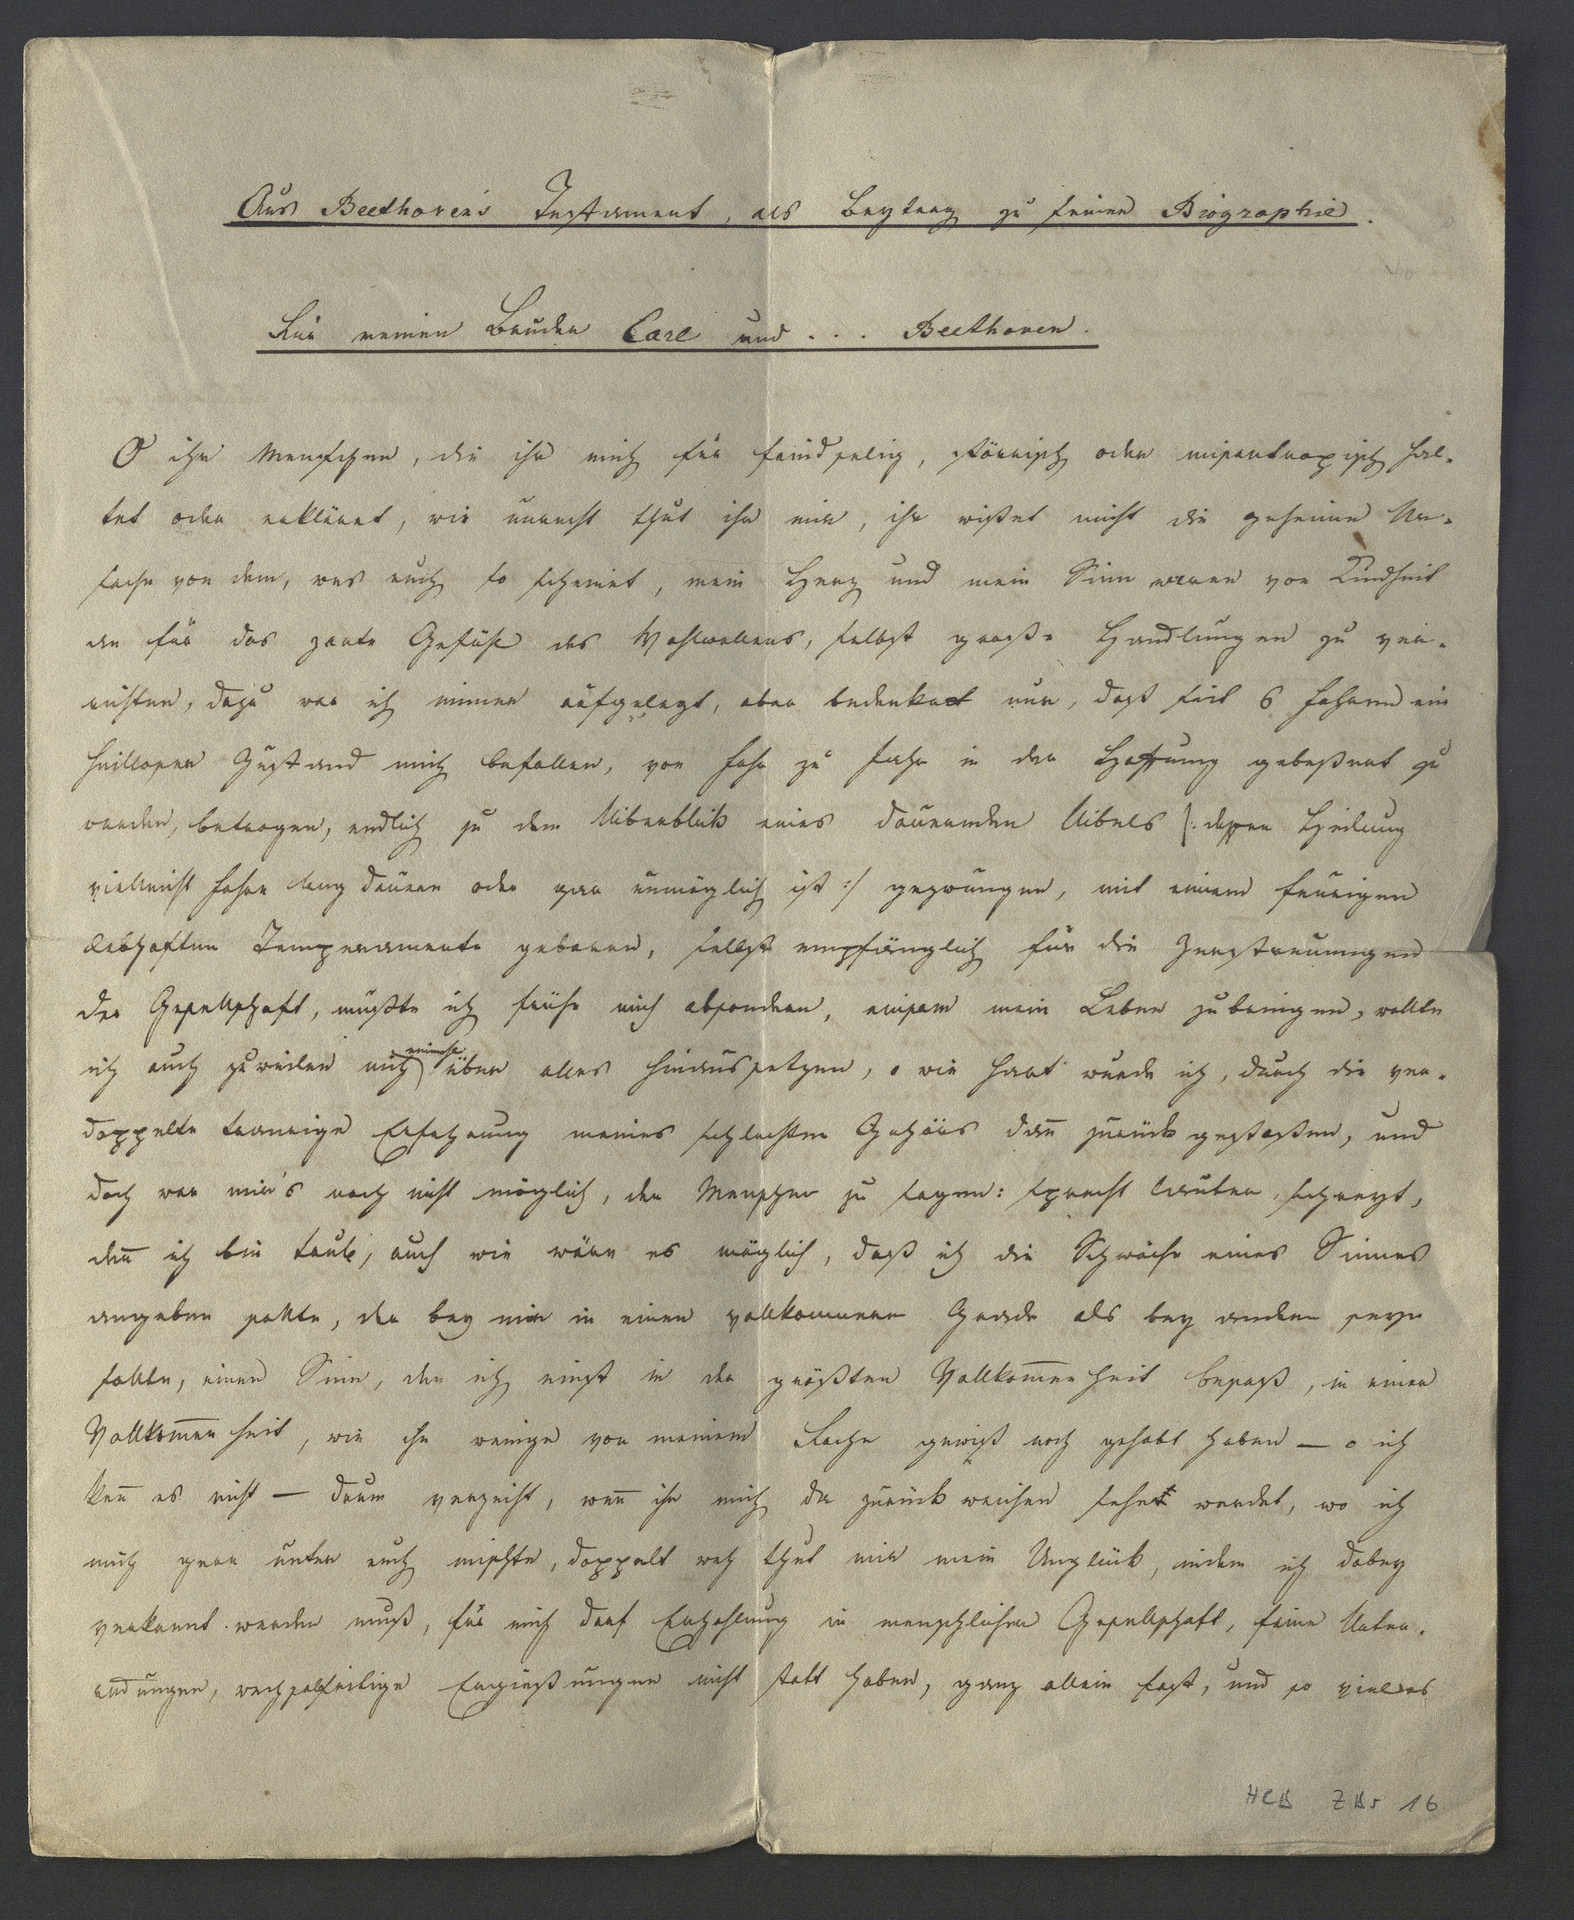 Aus Beethoven's Testament, als Beytrag zu seiner Biographie.
Für meinen Bruder Carl und . . . Beethoven.
O ihr Menschen, die ihr mich für feindselig, störrisch oder misantropisch hal-
tet oder erkläret, wie unrecht thut ihr mir, ihr wißet nicht die geheime Ur-
sache von dem, was euch so scheinet, mein Herz und mein Sinn waren von Kindheit
an für das zarte Gefühl des Wohlwollens, selbst große Handlungen zu ver-
richten, dazu war ich immer aufgelegt, aber bedenket nur, daß seit 6 Jahren ein
heilloser Zustand mich befallen, von Jahr zu Jahr in der Hoffnung gebeßert zu
werden, betrogen, endlich zu dem Uiberblick eines dauernden Uibels /: dessen Heilung
vielleicht Jahre lang dauern oder gar unmöglich ist :/ gezwungen, mit einem feurigen
lebhaften Temperamente geboren, selbst empfänglich für die Zerstreuungen
der Gesellschaft, mußte ich frühe mich absondern, einsam mein Leben zubringen, wollte
ich auch zuweilen mich einmahl über alles hinaussetzen, o wie hart wurde ich, durch die ver-
doppelte traurige Erfahrung meines schlechten Gehörs dan̅ zurück gestoßen, und
doch war mir's noch nicht möglich, den Menschen zu sagen: sprecht lauter, schreyt,
den̅ ich bin taub, auch wie wäre es möglich, daß ich die Schwäche eines Sinnes
angeben sollte, der bey mir in einen vollkommenern Grade als bey andern seyn
sollte, einen Sinn, den ich einst in der größten Vollkom̅enheit besaß, in einer
Vollkom̅enheit, wie ihn wenige von meinem Fache gewiß noch gehabt haben — o ich
kan̅ es nicht — drum verzeiht, wen̅ ihr mich da zurück weichen sehet werdet, wo ich
mich gern unter euch mischte, doppelt weh thut mir mein Unglück, indem ich dabey
verkannt werden muß, für mich darf Erhohlung in menschlicher Gesellschaft, feine Unter-
redungen, wechselseitige Ergießungen nicht statt haben, ganz allein fast, und so viel es
HCB ZBr 16